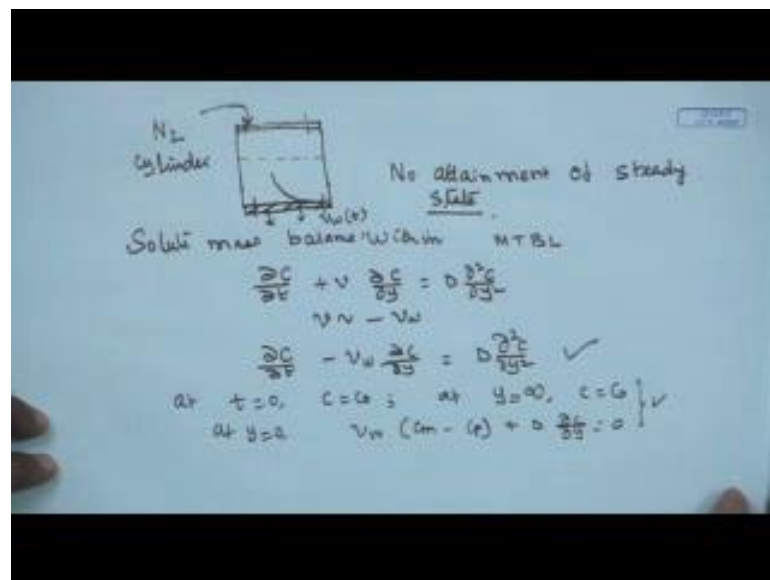 N2
Cylinder
Vw(t)
No attainment of steady
state.
Solute mass balance within MTBL
∂C/∂t + v ∂C/∂y = D ∂²C/∂y²
v ~ - Vw
∂C/∂t - Vw ∂C/∂y = D ∂²C/∂y² ✓
at t=0, C=C0; at y=∞, C=C0
at y=0 Vw (Cm - Cp) + D ∂C/∂y = 0 ✓